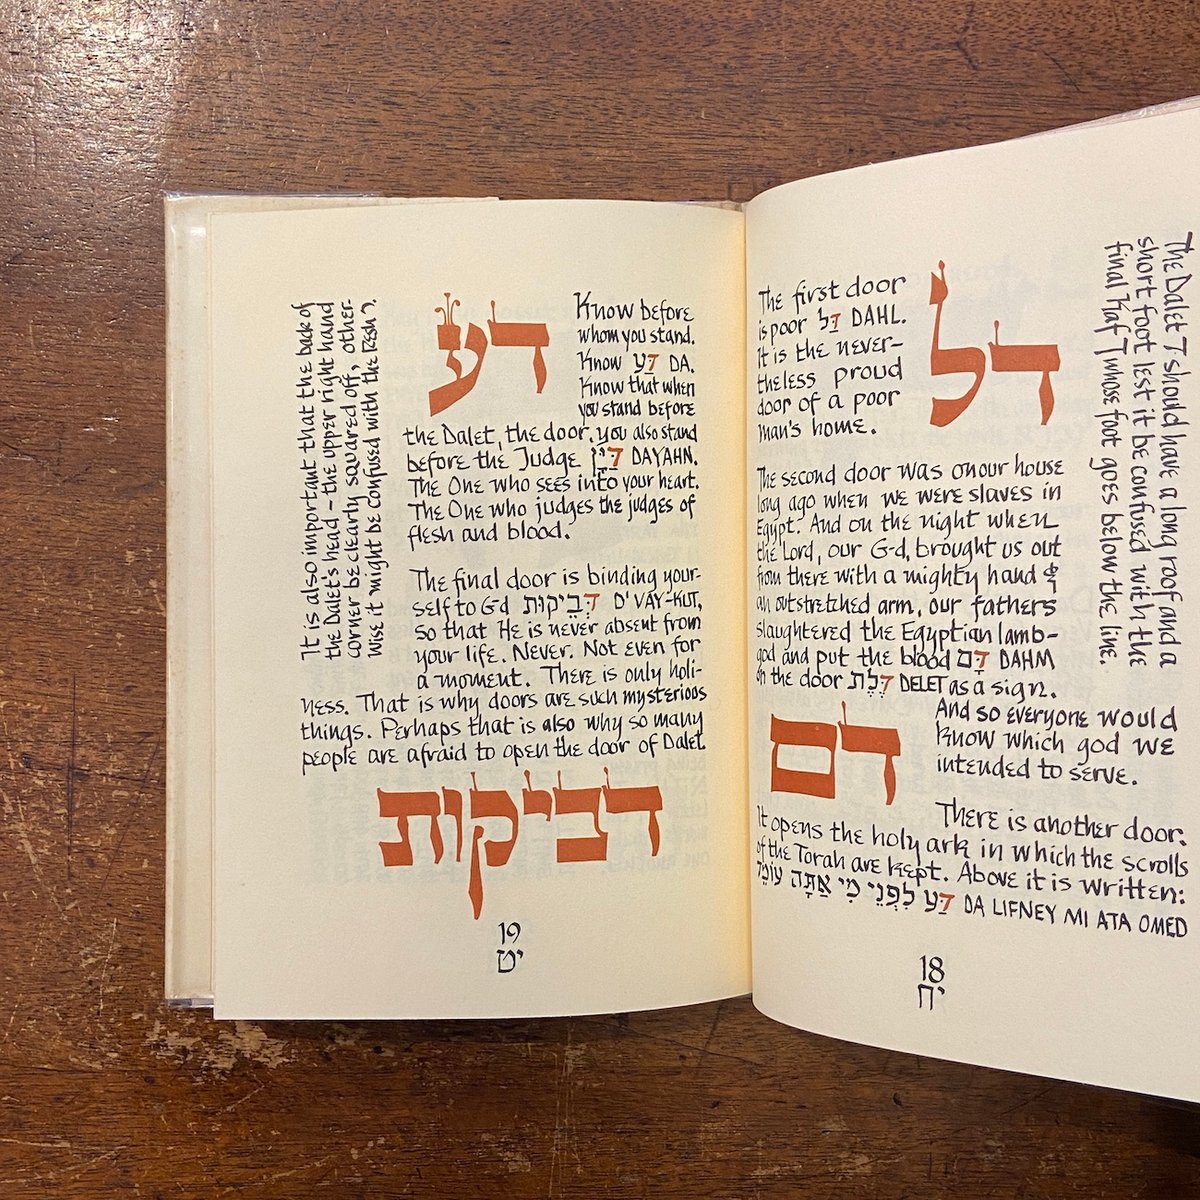 דל
The first door
is poor דַּל DAHL.
It is the never-
theless proud
door of a poor
man's home.
The second door was on our house
long ago when we were slaves in
Egypt. And on the night when
the Lord, our G-d, brought us out
from there with a mighty hand &
an outstretched arm, our fathers
slaughtered the Egyptian lamb-
god and put the blood דָּם DAHM
on the door דֶּלֶת DELET as a sign.
דם
And so everyone would
know which god we
intended to serve.
There is another door.
It opens the holy ark in which the scrolls
of the Torah are kept. Above it is written:
דַּע לִפְנֵי מִי אַתָּה עוֹמֵד DA LIFNEY MI ATA OMED
The Dalet ד should have a long roof and a
short foot lest it be confused with the
final Kaf ך whose foot goes below the line.
18
יח
דע
Know before
whom you stand.
Know דַּע DA.
Know that when
you stand before
the Dalet, the door, you also stand
before the Judge דַּיָּן DAYAHN.
The One who sees into your heart.
The One who judges the judges of
flesh and blood.
The final door is binding your-
self to G-d דְּבֵיקוּת D'VAY-KUT,
so that He is never absent from
your life. Never. Not even for
a moment. There is only holi-
ness. That is why doors are such mysterious
things. Perhaps that is also why so many
people are afraid to open the door of Dalet.
דביקות
It is also important that the back of
the Dalet's head – the upper right hand
corner be clearly squared off, other-
wise it might be confused with the Resh ר.
19
יט